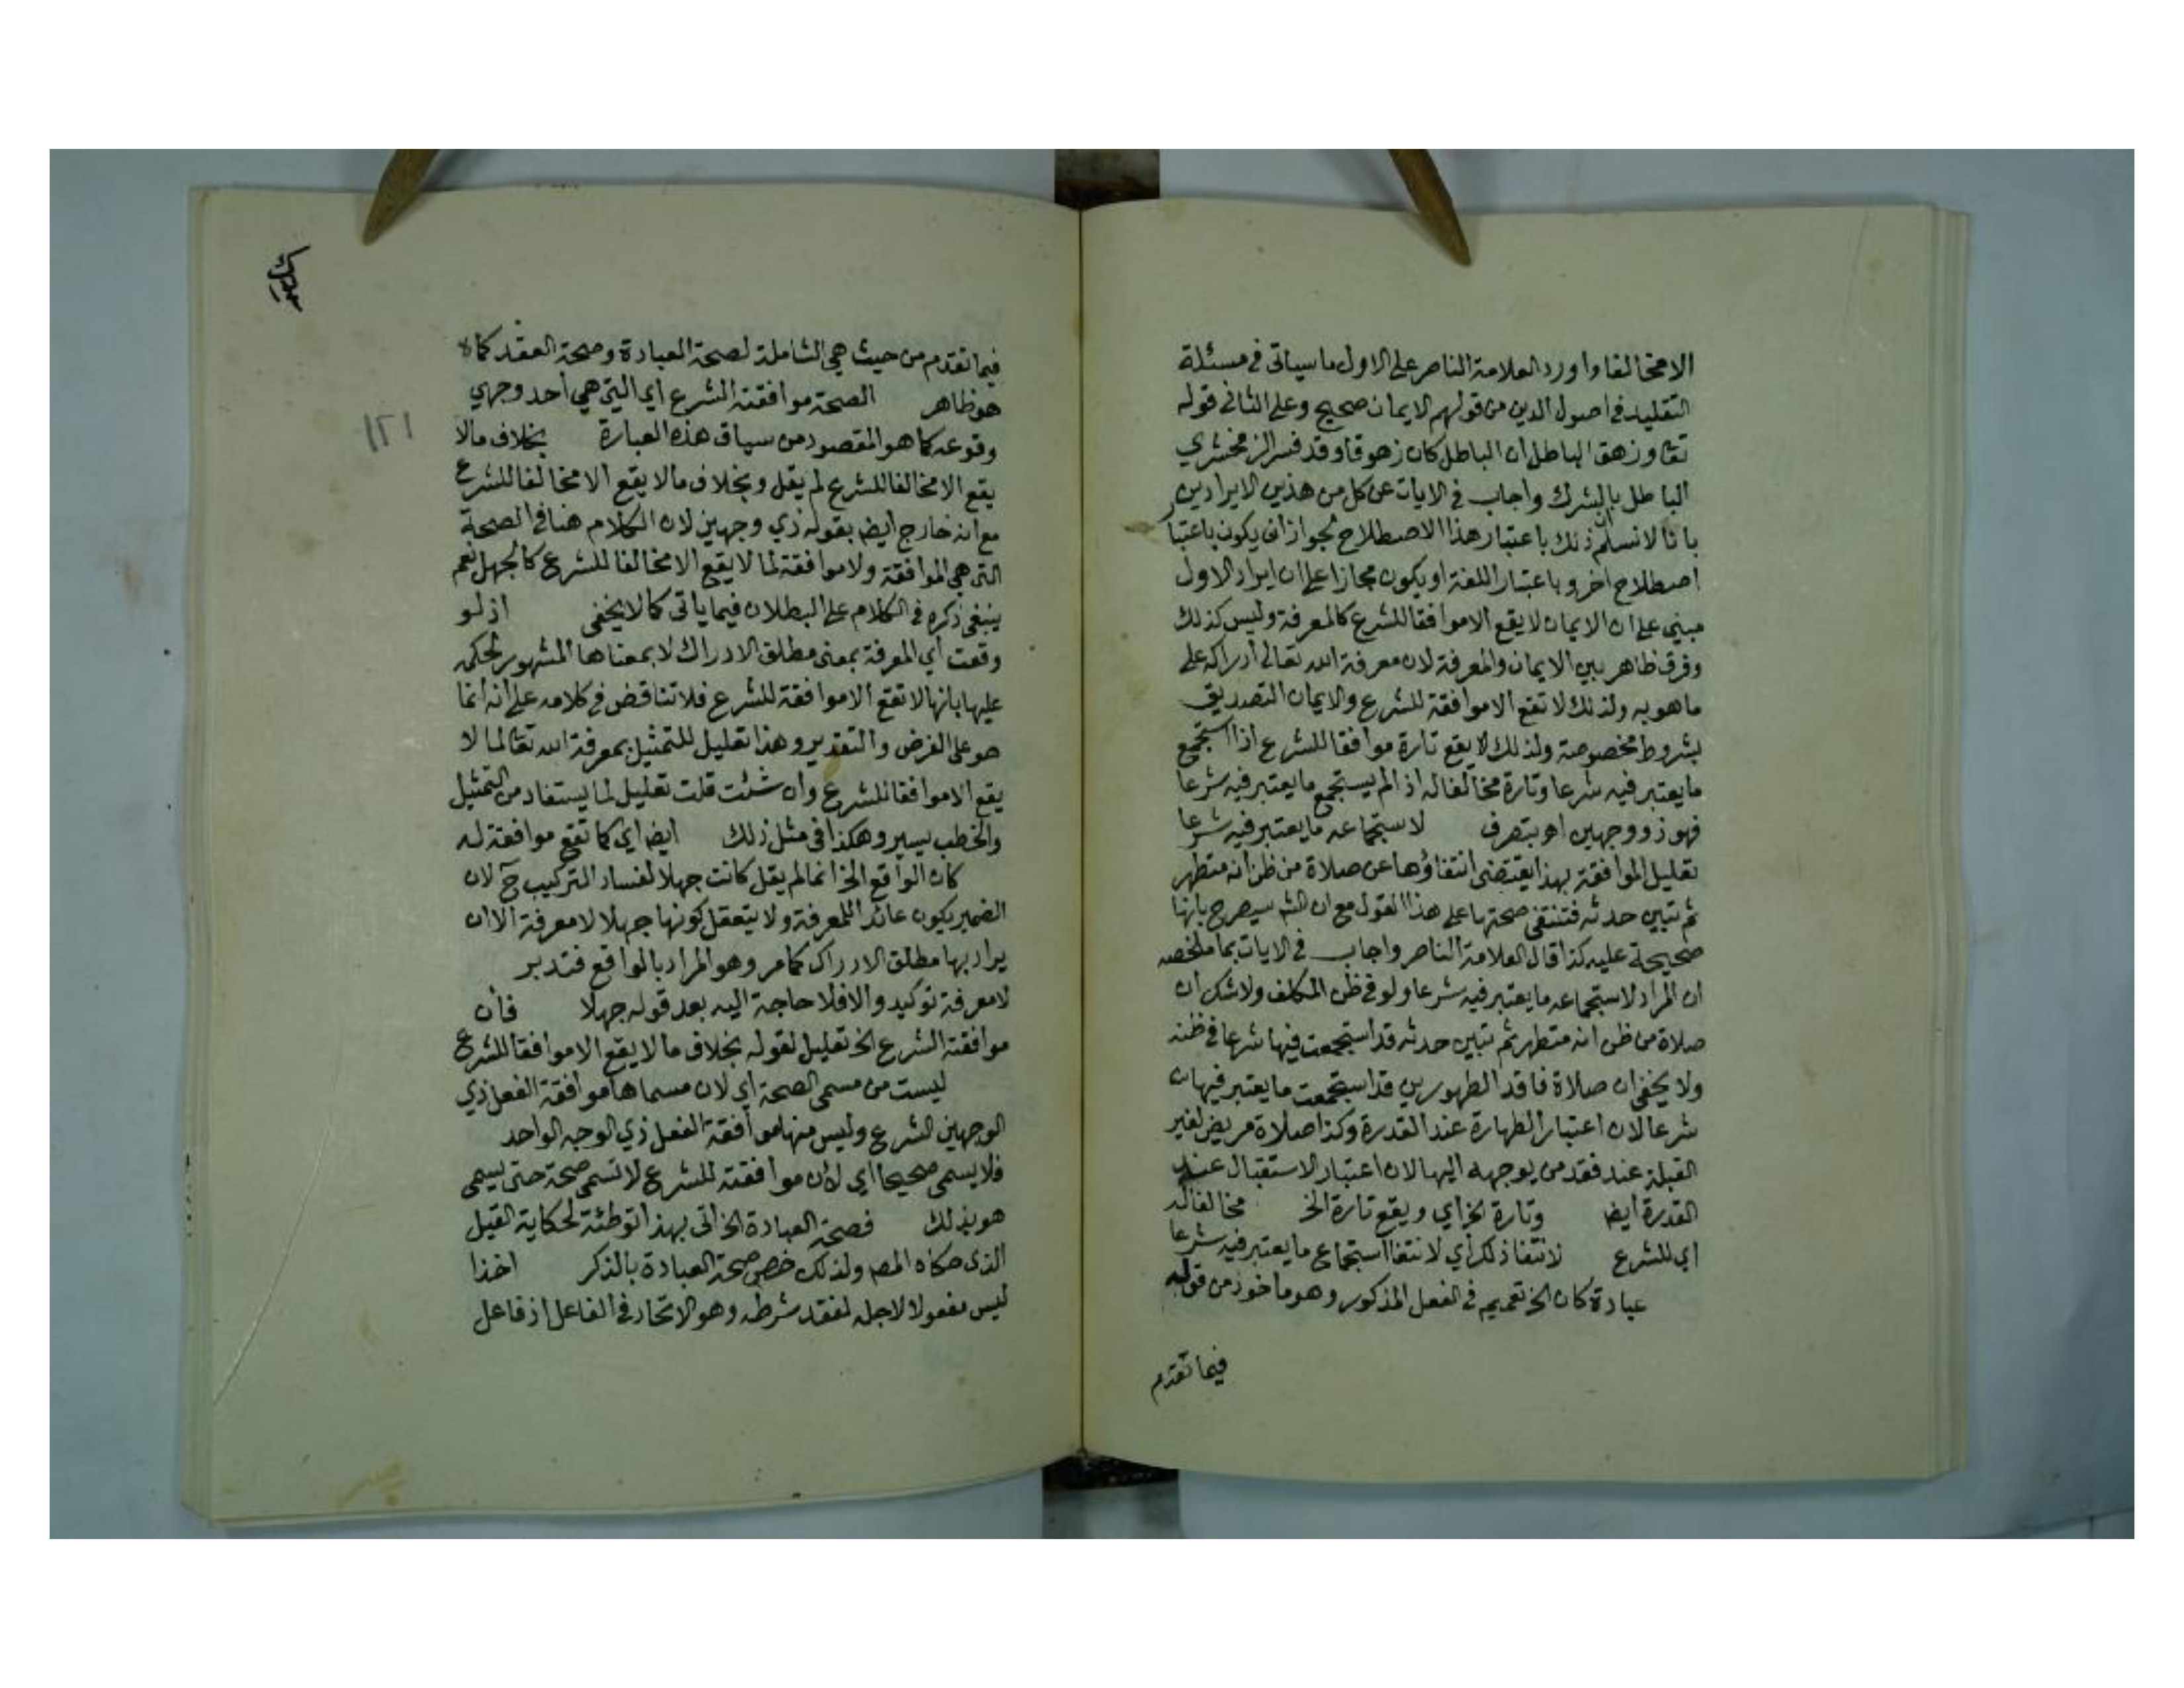 الامخالفا واورد العلامة الناصر على الاول ما سياتي في مسئلة
التقليد في اصول الدين من قولهم الايمان صحيح وعلى الثاني قوله
تعا وزهق الباطل ان الباطل كان زهوقا وقد فسر الزمخشري
الباطل بالشرك واجاب في الايات عن كل من هذين الايرادين
بانا لا نسلم ان ذلك باعتبار هذا الاصطلاح لجواز ان يكون باعتبار
اصطلاح اخر وباعتبار اللغة او يكون مجازا على ان ايراد الاول
مبني على ان الايمان لا يقع الا موافقا للشرع كالمعرفة وليس كذلك
وفرق ظاهر بين الايمان والمعرفة لان معرفة الله تعالى ادراكه على
ما هو به ولذلك لا تقع الا موافقة للشرع والايمان التصديق
بشروط مخصوصة ولذلك لا يقع تارة موافقا للشرع اذا استجمع
ما يعتبر فيه شرعا وتارة مخالفا له اذا لم يستجمع ما يعتبر فيه شرعا
فهو ذو وجهين اهـ بتصرف لاستجماعه ما يعتبر فيه شرعا
تعليل الموافقة بهذا يقتضي انتفاؤها عن صلاة من ظن انه متطهر
ثم تبين حدثه فتنتفي صحتها على هذا القول مع ان الشـ سيصرح بانها
صحيحة عليه كذا قال العلامة الناصر واجاب في الايات بما ملخصه
ان المراد لاستجماعه ما يعتبر فيه شرعا ولو في ظن المكلف ولا شك ان
صلاة من ظن انه متطهر ثم تبين حدثه قد استجمعت فيها شرعا في ظنه
ولا يخفى ان صلاة فاقد الطهورين قد استجمعت ما يعتبر فيها
شرعا لان اعتبار الطهارة عند القدرة وكذا صلاة مريض لغير
القبلة عند فقد من يوجهه اليها لان اعتبار الاستقبال عند
القدرة ايضا وتارة الخ اي ويقع تارة الخ مخالفا له
اي للشرع لانتفا ذلك اي لانتفا استجماع ما يعتبر فيه شرعا
عبادة كان الخ تعميم في الفعل المذكور وهو ماخوذ من قوله
فيما تقدم
فيما تقدم من حيث هي الشاملة لصحة العبادة وصحة العقد كما
هو ظاهر الصحة موافقته الشرع اي التي هي احد وجهي
وقوعه كما هو المقصود من سياق هذه العبارة بخلاف ما لا
يقع الا مخالفا للشرع لم يقل وبخلاف ما لا يقع الا مخالفا للشرع
مع انه خارج ايضا بقوله ذي وجهين لان الكلام هنا في الصحة
التي هي الموافقة ولا موافقة لما لا يقع الا مخالفا للشرع كالجهل نعم
ينبغي ذكره في الكلام على البطلان فيما ياتي كما لا يخفى اذ لو
وقعت اي المعرفة بمعنى مطلق الادراك لا بمعناها المشهور لحكمه
عليها بانها لا تقع الا موافقة للشرع فلا تناقض في كلامه على انه انما
هو على الفرض والتقدير وهذا تعليل للتمثيل بمعرفة الله تعا لما لا
يقع الا موافقا للشرع وان شئت قلت تعليل لما يستفاد من التمثيل
والخطب يسير وهكذا في مثل ذلك ايضا اي كما تقع موافقة له
كان الواقع الخ انما لم يقل كانت جهلا لفساد التركيب ح لان
الضمير يكون عائدا للمعرفة ولا يتعقل كونها جهلا لا معرفة الا ان
يراد بها مطلق الادراك كما مر وهو المراد بالواقع فتدبر
لا معرفة توكيد والا فلا حاجة اليه بعد قوله جهلا فان
موافقته الشرع الخ تعليل لقوله بخلاف ما لا يقع الا موافقا للشرع
ليست من مسمى الصحة اي لان مسماها موافقة الفعل ذي
الوجهين الشرع وليس منها موافقة الفعل ذي الوجه الواحد
فلا يسمى صحيحا اي لان موافقته للشرع لا تسمى صحة حتى يسمى
هو بذلك فصحة العبادة الخ اتى بهذا توطئة لحكاية القيل
الذي حكاه المصـ ولذلك خص صحة العبادة بالذكر اخذا
ليس مفعولا لاجله لفقد شرطه وهو الاتحاد في الفاعل اذ فاعل
١٢١